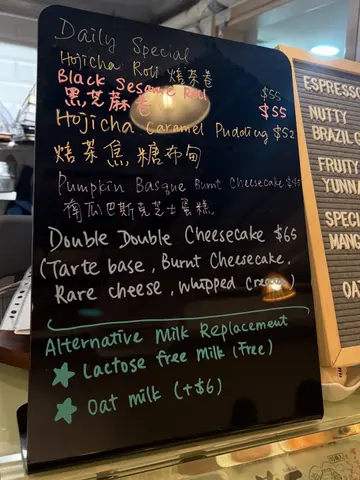 Daily Special
Hojicha Roll 焙茶卷 $55
Black Sesame Roll
黑芝蔴卷 $55
Hojicha Caramel Pudding $52
焙茶焦糖布甸
Pumpkin Basque Burnt Cheesecake
南瓜巴斯克芝士蛋糕
Double Double Cheesecake $65
(Tarte base, Burnt Cheesecake,
Rare cheese, whipped cream)
Alternative Milk Replacement
Lactose free Milk (Free)
Oat milk (+$6)
ESPRESSO
NUTTY
BRAZIL
FRUITY
YUNN
SPECI
MANG
OAT